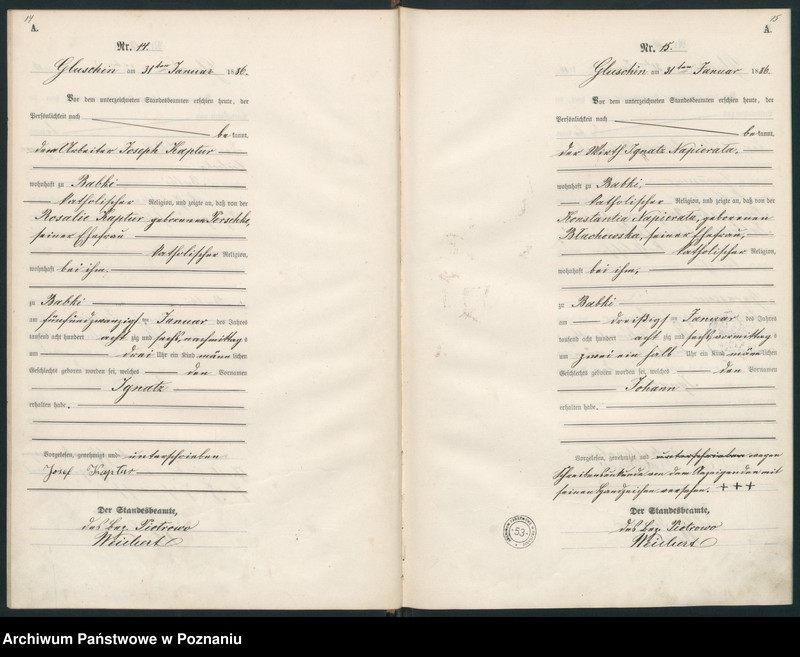 14
A.
Nr. 14.
Gluschin am 31ten Januar 1886.
Vor dem unterzeichneten Standesbeamten erschien heute, der
Persönlichkeit nach
bekannt,
der Arbeiter Joseph Kaptur
wohnhaft zu Babki
katholischer Religion, und zeigte an, daß von der
Rosalie Kaptur geborenen Perschke,
seiner Ehefrau
katholischer Religion,
wohnhaft bei ihm,
zu Babki
am fünfundzwanzigsten Januar des Jahres
tausend acht hundert achtzig und sechs, nachmittags
um drei Uhr ein Kind männlichen
Geschlechts geboren worden sei, welches den Vornamen
Ignatz
erhalten habe.
Vorgelesen, genehmigt und unterschrieben
Josef Kaptur
Der Standesbeamte,
des Bez. Piotrowo
Weichert
15
A.
Nr. 15.
Gluschin am 31ten Januar 1886.
Vor dem unterzeichneten Standesbeamten erschien heute, der
Persönlichkeit nach
bekannt,
der Wirth Ignatz Napierala.
wohnhaft zu Babki,
katholischer Religion, und zeigte an, daß von der
Konstantia Napierala, geborenen
Błachowska, seiner Ehefrau,
katholischer Religion,
wohnhaft bei ihm,
zu Babki
am dreißigsten Januar des Jahres
tausend acht hundert achtzig und sechs, vormittags
um zwei ein halb Uhr ein Kind männlichen
Geschlechts geboren worden sei, welches den Vornamen
Johann
erhalten habe.
Vorgelesen, genehmigt und unterschrieben wegen
Schreibensunkunde von dem Anzeigenden mit
seinen Handzeichen versehen. +++
Der Standesbeamte,
des Bez. Piotrowo
Weichert
53
Archiwum Państwowe w Poznaniu